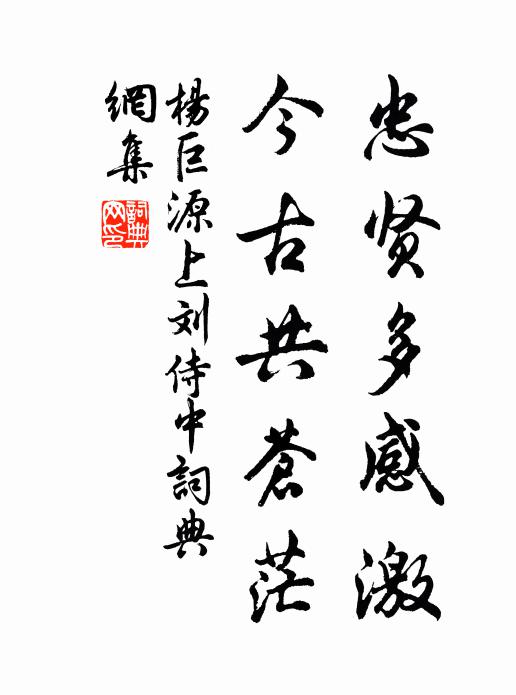 忠贤多感激
今古共蒼茫
楊巨源上刘侍中詞典
網集
詞典
网印